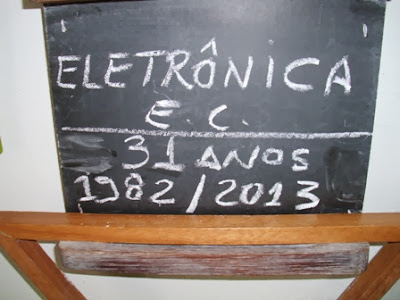 ELETRÔNICA
E.C.
31 ANOS
1982/2013